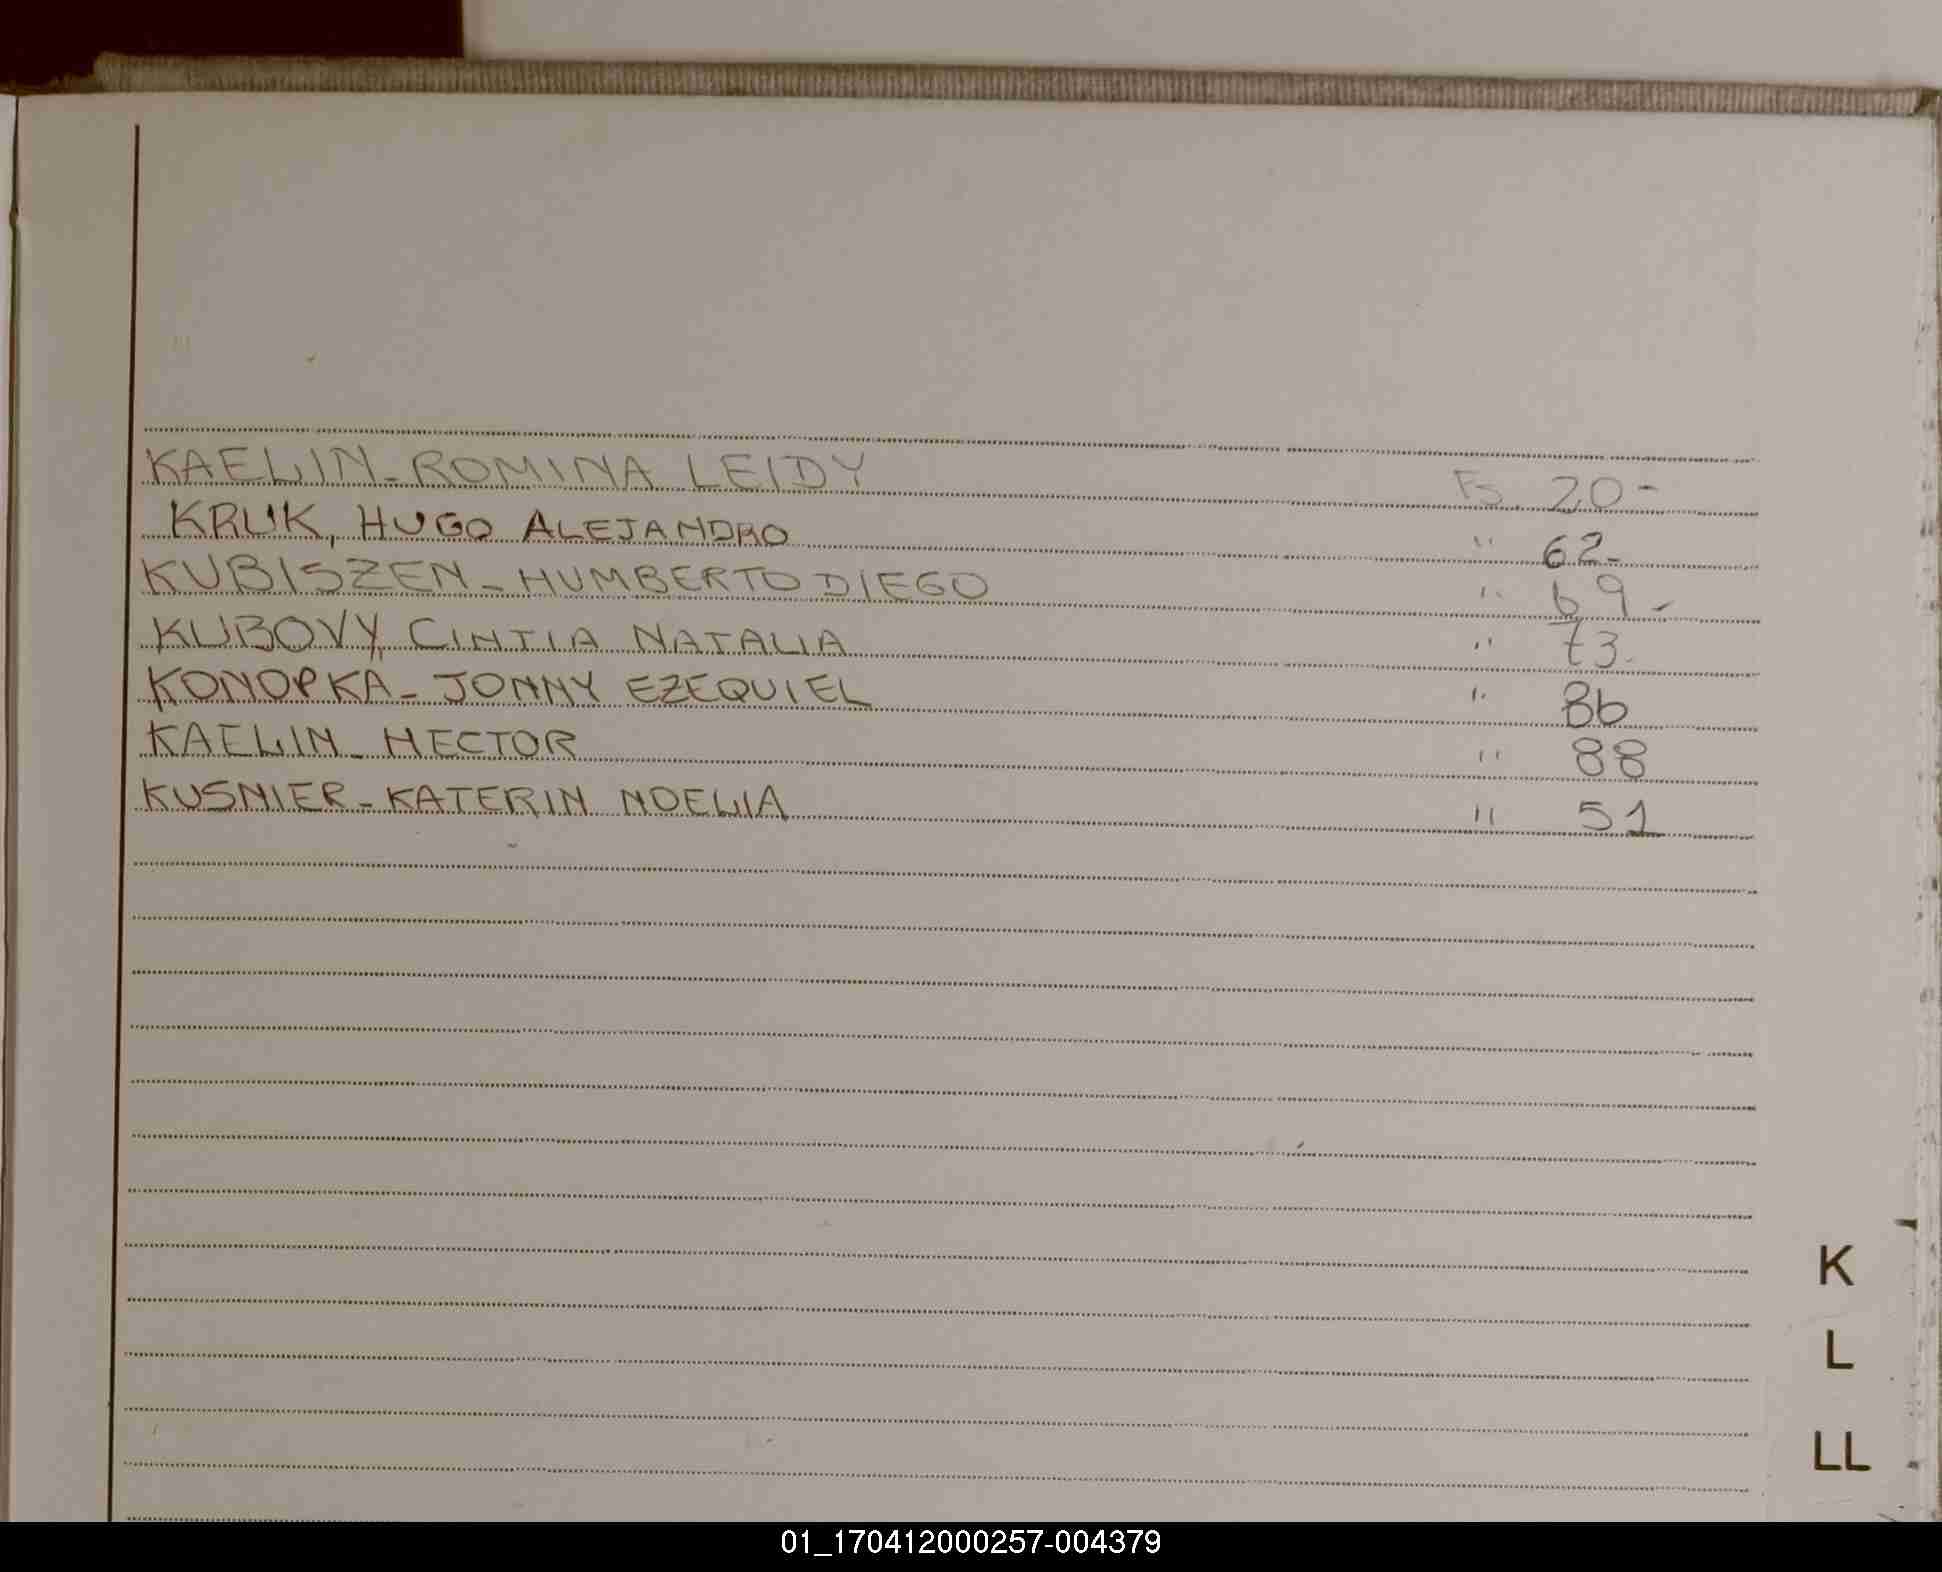 KAELIN-ROMINA LEIDY Fs. 20-
KRUK, HUGO ALEJANDRO " 62-
KUBISZEN-HUMBERTO DIEGO " 69-
KUBOVY, CINTIA NATALIA " 73-
KONOPKA-JONNY EZEQUIEL " 86
KAELIN-HECTOR " 88
KUSNIER-KATERIN NOELIA " 51
K
L
LL
01_170412000257-004379